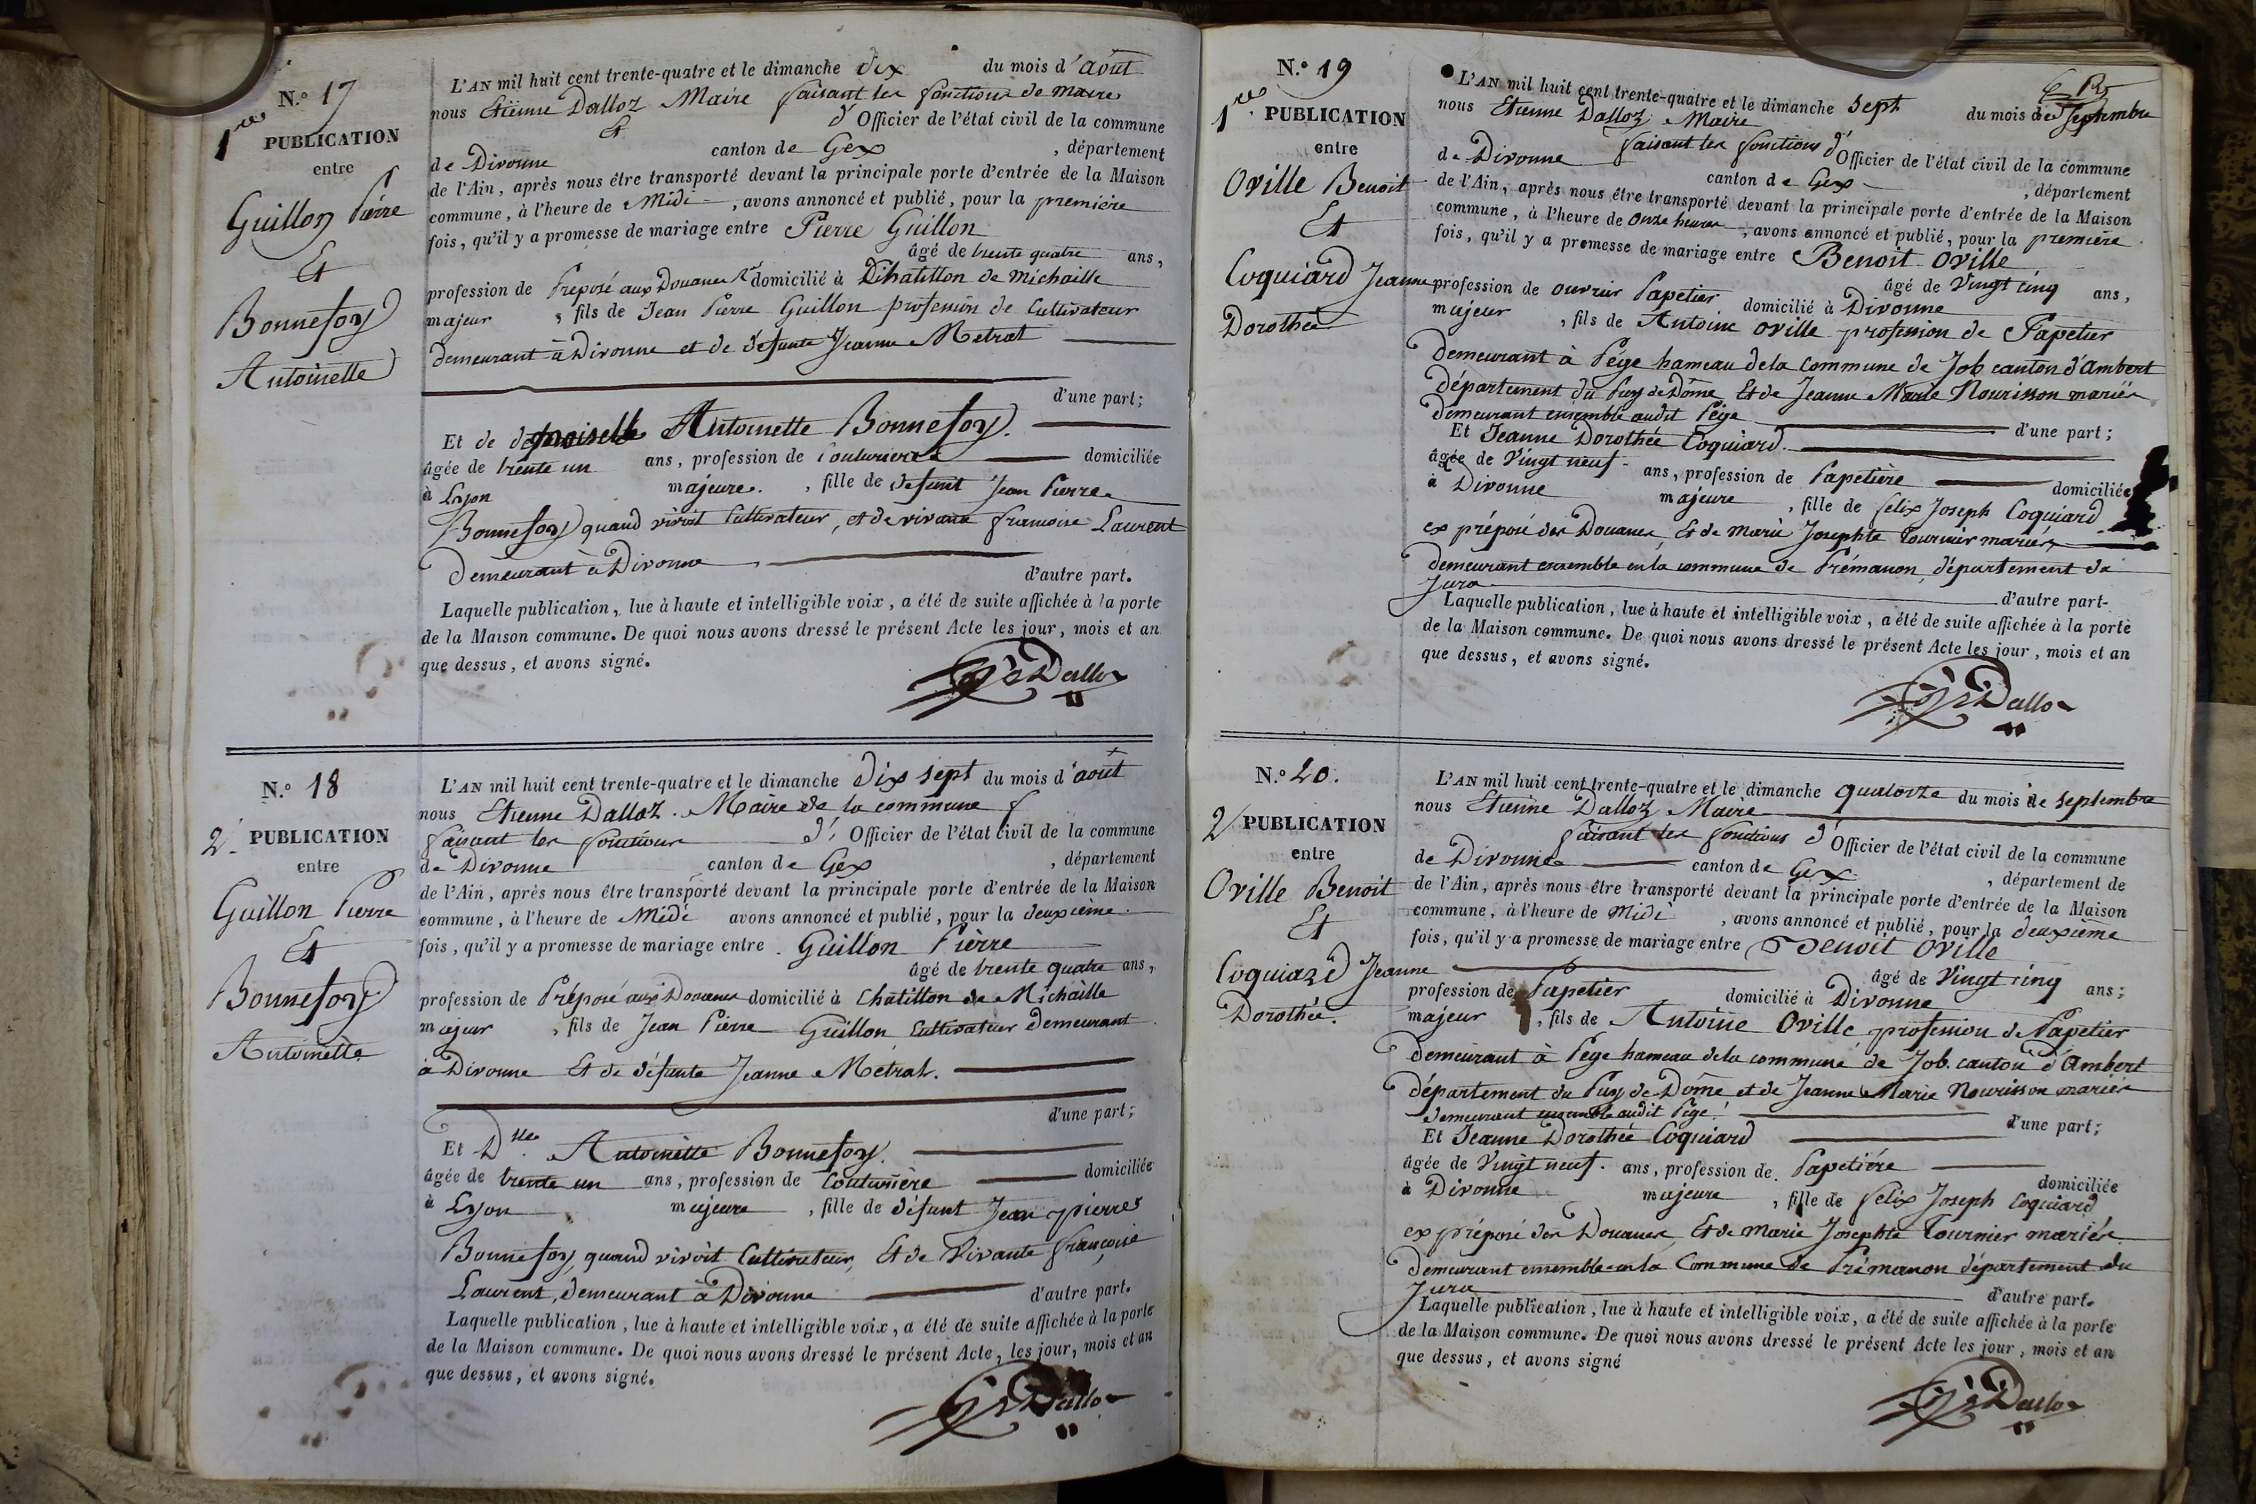 N.o 17
1re PUBLICATION
entre
Guillon Pierre
Et
Bonnefoy
Antoinette
L'AN mil huit cent trente-quatre et le dimanche dix du mois d'août
nous Etienne Dalloz Maire faisant les fonctions de maire
et d'Officier de l'état civil de la commune
de Divonne canton de Gex , département
de l'Ain, après nous être transporté devant la principale porte d'entrée de la Maison
commune, à l'heure de Midi , avons annoncé et publié, pour la première
fois, qu'il y a promesse de mariage entre Pierre Guillon
âgé de trente quatre ans,
profession de Préposé aux Douanes domicilié à Chatillon de Michaille
majeur , fils de Jean Pierre Guillon profession de Cultivateur
demeurant à Divonne et de défunte Jeanne Metral
d'une part;
Et de demoiselle Antoinette Bonnefoy.
âgée de trente un ans, profession de Couturière domiciliée
à Lyon majeure. , fille de défunt Jean Pierre
Bonnefoy quand vivoit Cultivateur, et de vivante françoise Laurent
demeurant à Divonne
d'autre part.
Laquelle publication, lue à haute et intelligible voix, a été de suite affichée à la porte
de la Maison commune. De quoi nous avons dressé le présent Acte les jour, mois et an
que dessus, et avons signé.
Dalloz
N.o 18
2. PUBLICATION
entre
Guillon Pierre
Et
Bonnefoy
Antoinette
L'AN mil huit cent trente-quatre et le dimanche dix sept du mois d'août
nous Etienne Dalloz. Maire de la commune
faisant les fonctions d', Officier de l'état civil de la commune
de Divonne canton de Gex , département
de l'Ain, après nous être transporté devant la principale porte d'entrée de la Maison
commune, à l'heure de Midi avons annoncé et publié, pour la deuxième
fois, qu'il y a promesse de mariage entre Guillon Pierre
âgé de trente quatre ans,
profession de Préposé aux Douanes domicilié à Chatillon de Michaille
majeur , fils de Jean Pierre Guillon Cultivateur demeurant
à Divonne Et de défunte Jeanne Metral.
d'une part;
Et Dlle. Antoinette Bonnefoy.
âgée de trente un ans, profession de Couturière domiciliée
à Lyon majeure , fille de défunt Jean pierre
Bonnefoy, quand vivoit Cultivateur, Et de Vivante françoise
Laurent, demeurant à Divonne d'autre part.
Laquelle publication, lue à haute et intelligible voix, a été de suite affichée à la porte
de la Maison commune. De quoi nous avons dressé le présent Acte, les jour, mois et an
que dessus, et avons signé.
Dalloz
N.o 19
1re PUBLICATION
entre
Oville Benoit
Et
Coquiard Jeanne
Dorothée
L'AN mil huit cent trente-quatre et le dimanche sept du mois de Septembre
nous Etienne Dalloz Maire
faisant les fonctions d'Officier de l'état civil de la commune
de Divonne canton de Gex , département
de l'Ain, après nous être transporté devant la principale porte d'entrée de la Maison
commune, à l'heure de Onze heures , avons annoncé et publié, pour la première
fois, qu'il y a promesse de mariage entre Benoit Oville
âgé de Vingt cinq ans,
profession de ouvrier Papetier domicilié à Divonne
majeur , fils de Antoine Oville profession de Papetier
demeurant à Pége hameau de la commune de Job canton d'Ambert
département du Puy de Dôme Et de Jeanne Marie Nourisson mariés
demeurant ensemble audit Pége
d'une part;
Et Jeanne Dorothée Coquiard.
âgée de Vingt neuf ans, profession de Papetière domiciliée
à Divonne majeure , fille de felix Joseph Coquiard
ex préposé des Douanes, Et de Marie Josephte Tournier mariés
demeurant ensemble en la commune de Prémanon, département du
Jura d'autre part.
Laquelle publication, lue à haute et intelligible voix, a été de suite affichée à la porte
de la Maison commune. De quoi nous avons dressé le présent Acte les jour, mois et an
que dessus, et avons signé.
Dalloz
N.o 20.
2 PUBLICATION
entre
Oville Benoit
Et
Coquiard Jeanne
Dorothée.
L'AN mil huit cent trente-quatre et le dimanche quatorze du mois de septembre
nous Etienne Dalloz Maire
faisant les fonctions d'Officier de l'état civil de la commune
de Divonne canton de Gex. , département de
de l'Ain, après nous être transporté devant la principale porte d'entrée de la Maison
commune, à l'heure de Midi , avons annoncé et publié, pour la deuxième
fois, qu'il y a promesse de mariage entre Benoit Oville
âgé de Vingt cinq ans;
profession de Papetier domicilié à Divonne
majeur , fils de Antoine Oville profession de Papetier
demeurant à Pége hameau de la commune de Job. canton d'Ambert
département du Puy de Dôme et de Jeanne Marie Nourisson mariés
demeurant ensemble audit Pége.
d'une part;
Et Jeanne Dorothée Coquiard
âgée de Vingt neuf. ans, profession de Papetiére domiciliée
à Divonne majeure , fille de felix Joseph Coquiard
ex préposé des Douanes, Et de Marie Josephte Tournier mariés
demeurant ensemble en la Commune de Prémanon département du
Jura d'autre part.
Laquelle publication, lue à haute et intelligible voix, a été de suite affichée à la porte
de la Maison commune. De quoi nous avons dressé le présent Acte les jour, mois et an
que dessus, et avons signé
Dalloz